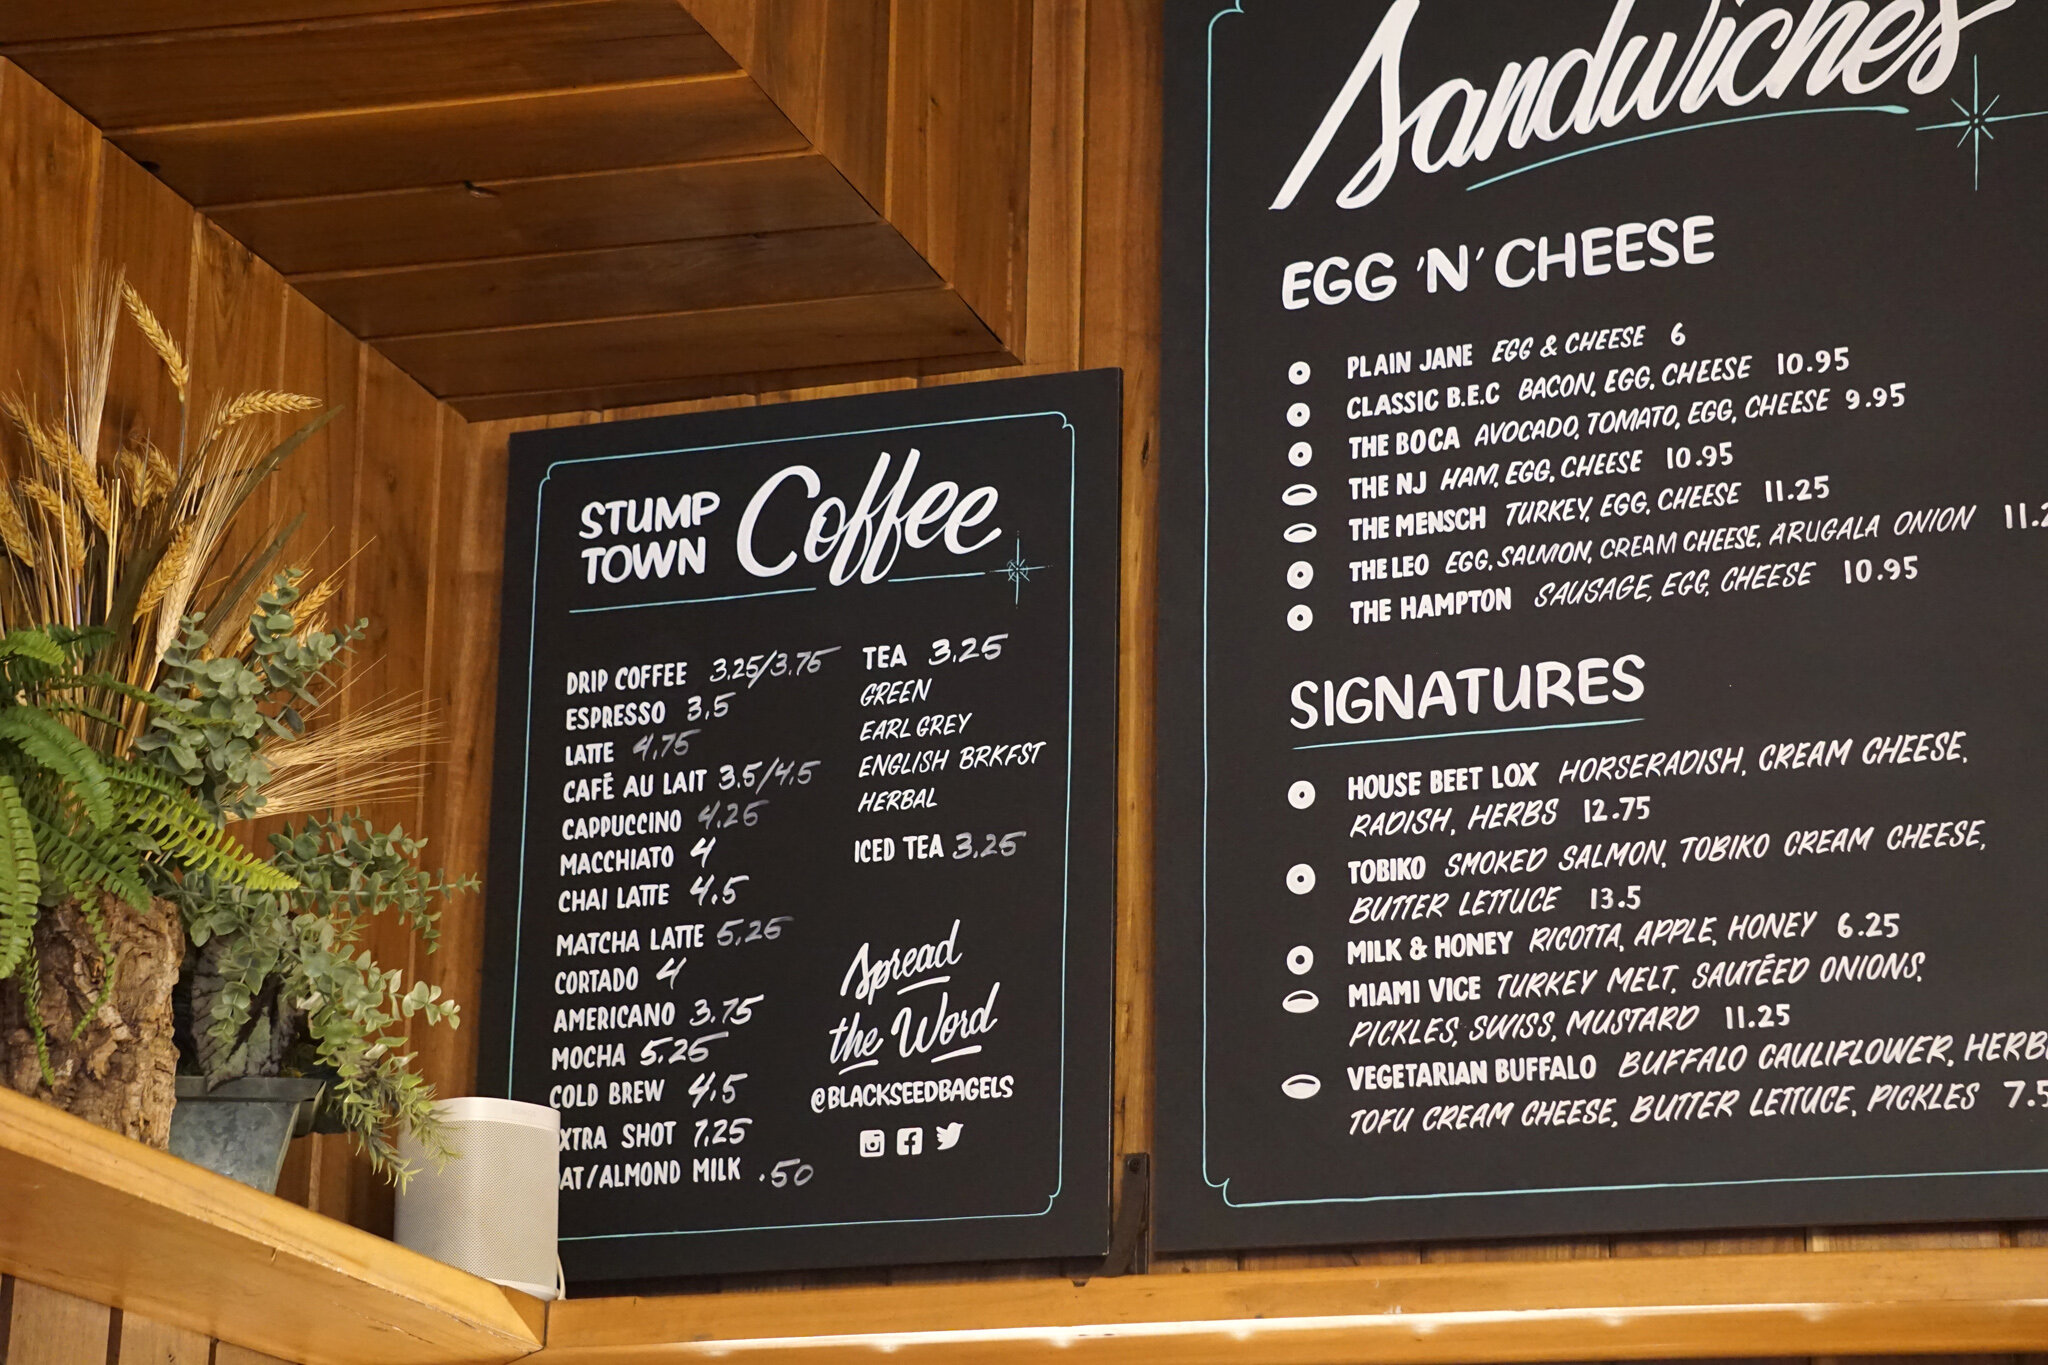 STUMP
TOWN
Coffee
DRIP COFFEE 3.25/3.75
ESPRESSO 3.5
LATTE 4.75
CAFÉ AU LAIT 3.5/4.5
CAPPUCCINO 4.25
MACCHIATO 4
CHAI LATTE 4.5
MATCHA LATTE 5.25
CORTADO 4
AMERICANO 3.75
MOCHA 5.25
COLD BREW 4.5
XTRA SHOT 1.25
AT/ALMOND MILK .50
TEA 3.25
GREEN
EARL GREY
ENGLISH BRKFST
HERBAL
ICED TEA 3.25
Spread
the Word
@BLACKSEEDBAGELS
Sandwiches
EGG 'N' CHEESE
PLAIN JANE EGG & CHEESE 6
CLASSIC B.E.C BACON, EGG, CHEESE 10.95
THE BOCA AVOCADO, TOMATO, EGG, CHEESE 9.95
THE NJ HAM, EGG, CHEESE 10.95
THE MENSCH TURKEY, EGG, CHEESE 11.25
THE LEO EGG, SALMON, CREAM CHEESE, ARUGALA ONION 11.2
THE HAMPTON SAUSAGE, EGG, CHEESE 10.95
SIGNATURES
HOUSE BEET LOX HORSERADISH, CREAM CHEESE,
RADISH, HERBS 12.75
TOBIKO SMOKED SALMON, TOBIKO CREAM CHEESE,
BUTTER LETTUCE 13.5
MILK & HONEY RICOTTA, APPLE, HONEY 6.25
MIAMI VICE TURKEY MELT, SAUTÉED ONIONS,
PICKLES, SWISS, MUSTARD 11.25
VEGETARIAN BUFFALO BUFFALO CAULIFLOWER, HERB
TOFU CREAM CHEESE, BUTTER LETTUCE, PICKLES 7.5